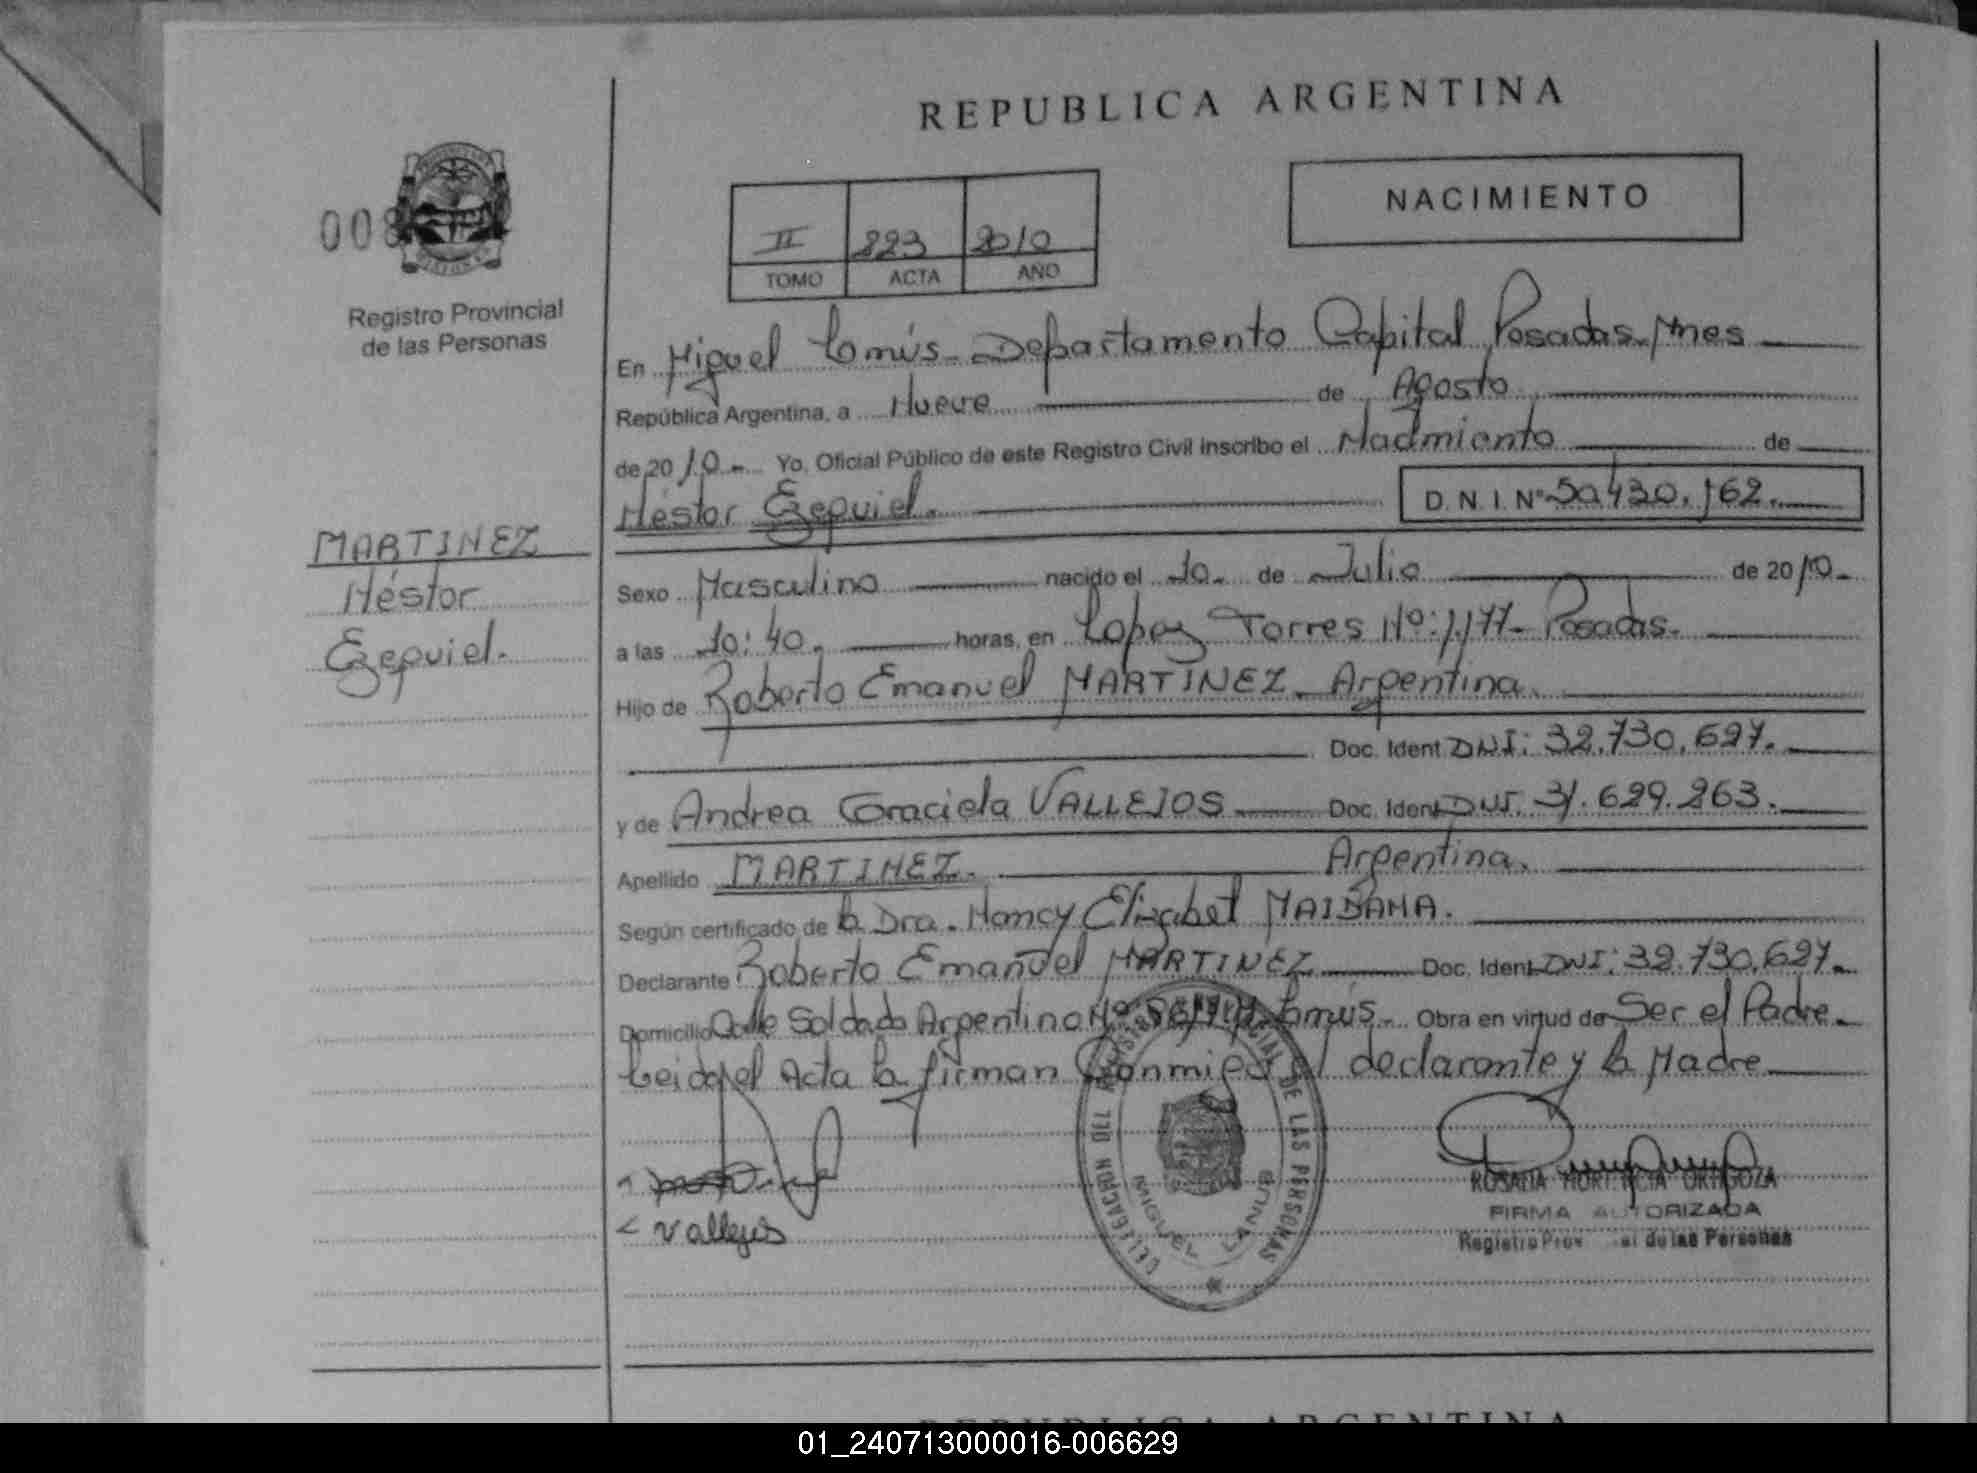 REPUBLICA ARGENTINA
NACIMIENTO
II 223 2010
TOMO ACTA AÑO
008
Registro Provincial
de las Personas
En Miguel Lanús - Departamento Capital Posadas - Mnes
República Argentina, a Nueve de Agosto
de 2010 - Yo, Oficial Público de este Registro Civil inscribo el Nacimiento de
Héstor Ezequiel. D.N.I. Nº 50.430.162.
MARTINEZ
Héstor
Ezequiel.
Sexo Masculino nacido el 10. de Julio de 2010 -
a las 10:40. horas, en Lopez Torres Nº: 1.177 - Posadas.
Hijo de Roberto Emanuel MARTINEZ - Argentina.
Doc. Ident. DNI: 32.730.627.
y de Andrea Graciela VALLEJOS Doc. Ident. DNI. 31.629.263.
Apellido MARTINEZ. Argentina.
Según certificado de la Dra. Nancy Elizabet MAIDANA.
Declarante Roberto Emanuel MARTINEZ Doc. Ident. DNI: 32.730.627.
Domicilio Calle Soldado Argentino Nº Lanús - Obra en virtud de Ser el Padre -
Leida el Acta la firman Conmigo el declarante y la Madre
Vallejos
DELEGACION REGISTRO PROVINCIAL DE LAS PERSONAS
MIGUEL LANUS
ROSANA HORTENCIA ORTIGOZA
FIRMA AUTORIZADA
Registro Prov de las Personas
REPUBLICA ARGENTINA
01_240713000016-006629